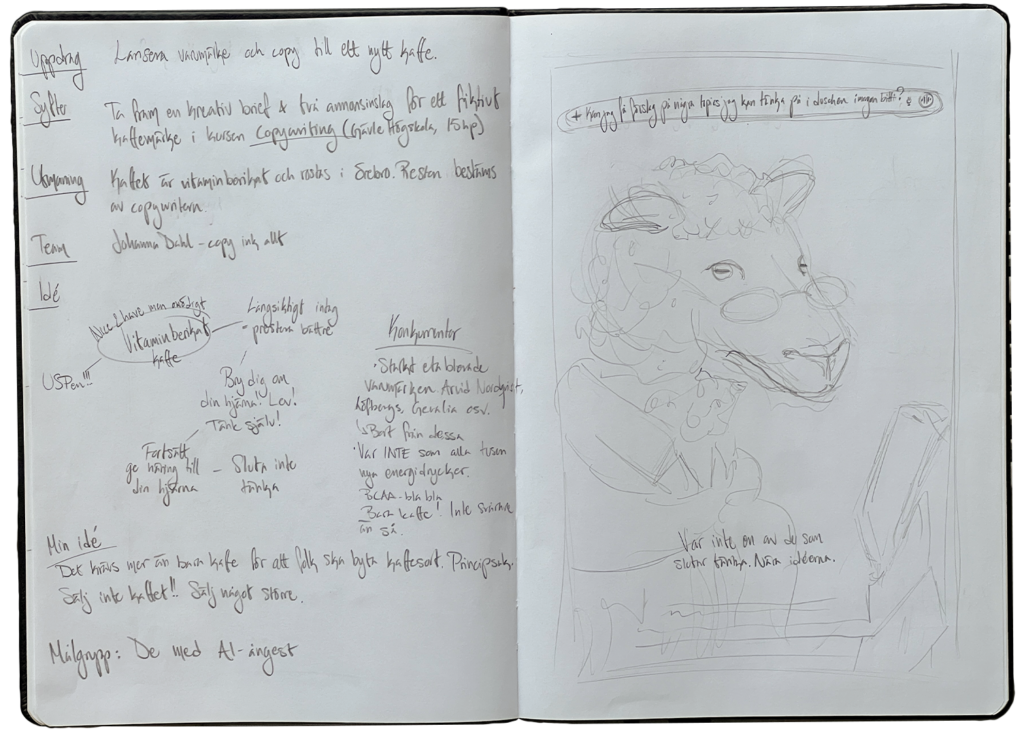 Uppdrag Lansera varumärke och copy till ett nytt kaffe.
Syfte Ta fram en kreativ brief & två annonsinslag för ett fiktivt
kaffemärke i kursen Copywriting (Gävle Högskola, 15hp)
Utmaning Kaffet är vitaminberikat och rostas i Örebro. Resten bestäms
av copywritern.
Team Johanna Dahl - copy ink allt
Idé
Nice 2 have men onödigt
Vitaminberikat
kaffe
USPen!!!
Långsiktigt intag
prestera bättre
Bry dig om
din hjärna! Lev!
Tänk själv!
Fortsätt
ge näring till
den hjärna
- Sluta inte
tänka
Konkurrenter
• Starkt etablerade
varumärken Arvid Nordqvist,
Löfbergs, Gevalia osv.
↳ Bort från dessa
• Var INTE som alla tusen
nya energidrycker.
BCAA - bla bla
Bara kaffe! Inte svårare
än så.
Min idé
Det krävs mer än bara kaffe för att folk ska byta kaffesort. Principsak.
Sälj inte kaffet!! Sälj något större.
Målgrupp: De med AI-ångest
+ Kan jag få förslag på några topics jag kan tänka på i duschen imorgon bitti?
Var inte en av de som
slutar tänka. Nära idéerna.